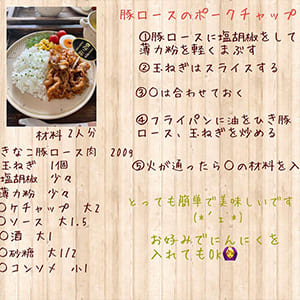 豚ロースのポークチャップ
①豚ロースに塩胡椒をして
薄力粉を軽くまぶす
②玉ねぎはスライスする
③〇は合わせておく
④フライパンに油をひき豚
ロース、玉ねぎを炒める
⑤火が通ったら〇の材料を入
とっても簡単で美味しいです
(*´ｪ`*)
お好みでにんにくを
入れてもOK🙆
材料 2人分
きなこ豚ロース肉 200g
玉ねぎ 1個
塩胡椒 少々
薄力粉 少々
〇ケチャップ 大2
〇ソース 大1.5
〇酒 大1
〇砂糖 大1/2
〇コンソメ 小1